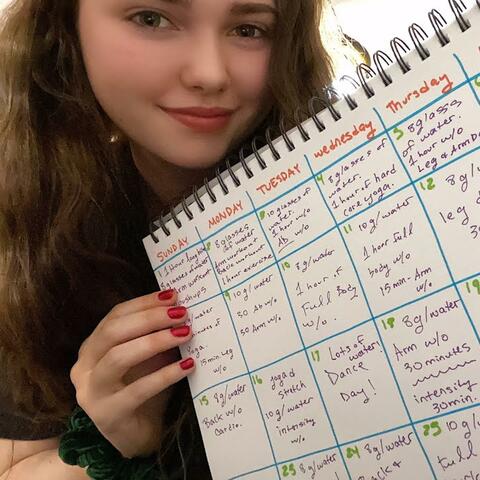 SUNDAY
MONDAY
TUESDAY
wednesday
Thursday
1 1 hour
8 glasses of water
Arm workout
pushups
2 8 glasses
of water
Arm workout
Basic workout
1 hour exercise
3 10 glasses of
water.
1 hour w/o
Ab w/o
4 8 glasses of
water.
1 hour of hard
core yoga.
5 8 glasses
of water.
1 hour w/o
Leg & Arm
water
Yoga.
15 min. Leg
w/o
9 10 g/water
50 Ab w/o
50 Arm w/o
10 8 g/water
1 hour of
Full Body
w/o.
11 10 g/water
1 hour full
body w/o
15 min. Arm
w/o
12 8 g/
leg
30
15 8 g/water
Back w/o
Cardio.
16 Yoga &
stretch
10 g/water
intensity
w/o
17 Lots of
water!
Dance
Day!
18 8 g/water
Arm w/o
30 minutes
intensity
30 min.
19
23 8 g/
24 8 g/water
Back &
25 10 g/
full